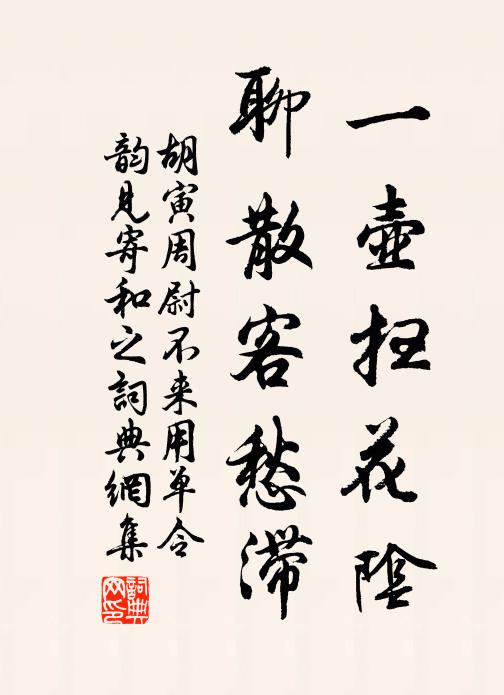 一壺掃花陰
聊散客愁滞
胡寅周尉不来用单令
韵見寄和之詞典網集
詞典網印